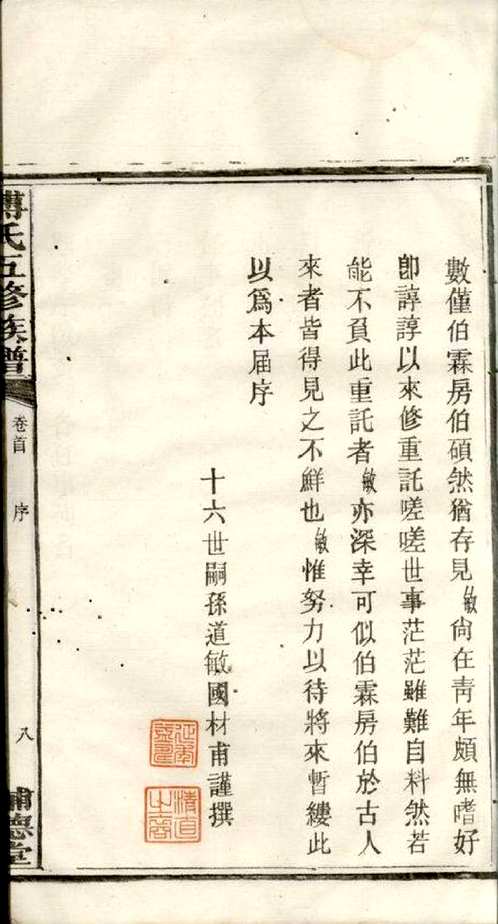 數僅伯霖房伯碩然猶存見敏尙在靑年頗無嗜好
卽諄諄以來修重託嗟嗟世事茫茫雖難自料然若
能不負此重託者敏亦深幸可似伯霖房伯於古人
來者皆得見之不鮮也敏惟努力以待將來暫縷此
以爲本届序
十六世嗣孫道敏國材甫謹撰
傅氏五修族譜
卷首
序
八
德堂
淸直